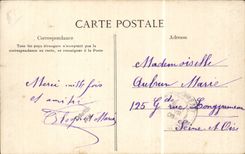 CARTE POSTALE
Correspondance
Adresse
Tous les pays étrangers n'acceptent pas la
correspondance au recto, se renseigner à la Poste
Mademoiselle
Aubrun Marie
125 Gde rue Longjumeau
Seine et Oise
Merci mille fois
et amitié
Marie